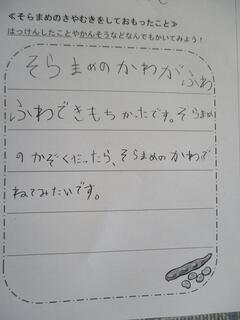 ≪そらまめのさやむきをしておもったこと≫
はっけんしたことやかんそうなどなんでもかいてみよう！
そらまめのかわがふわ
ふわできもちかったです。そらまめ
のかぞくだったら、そらまめのかわで
ねてみたいです。